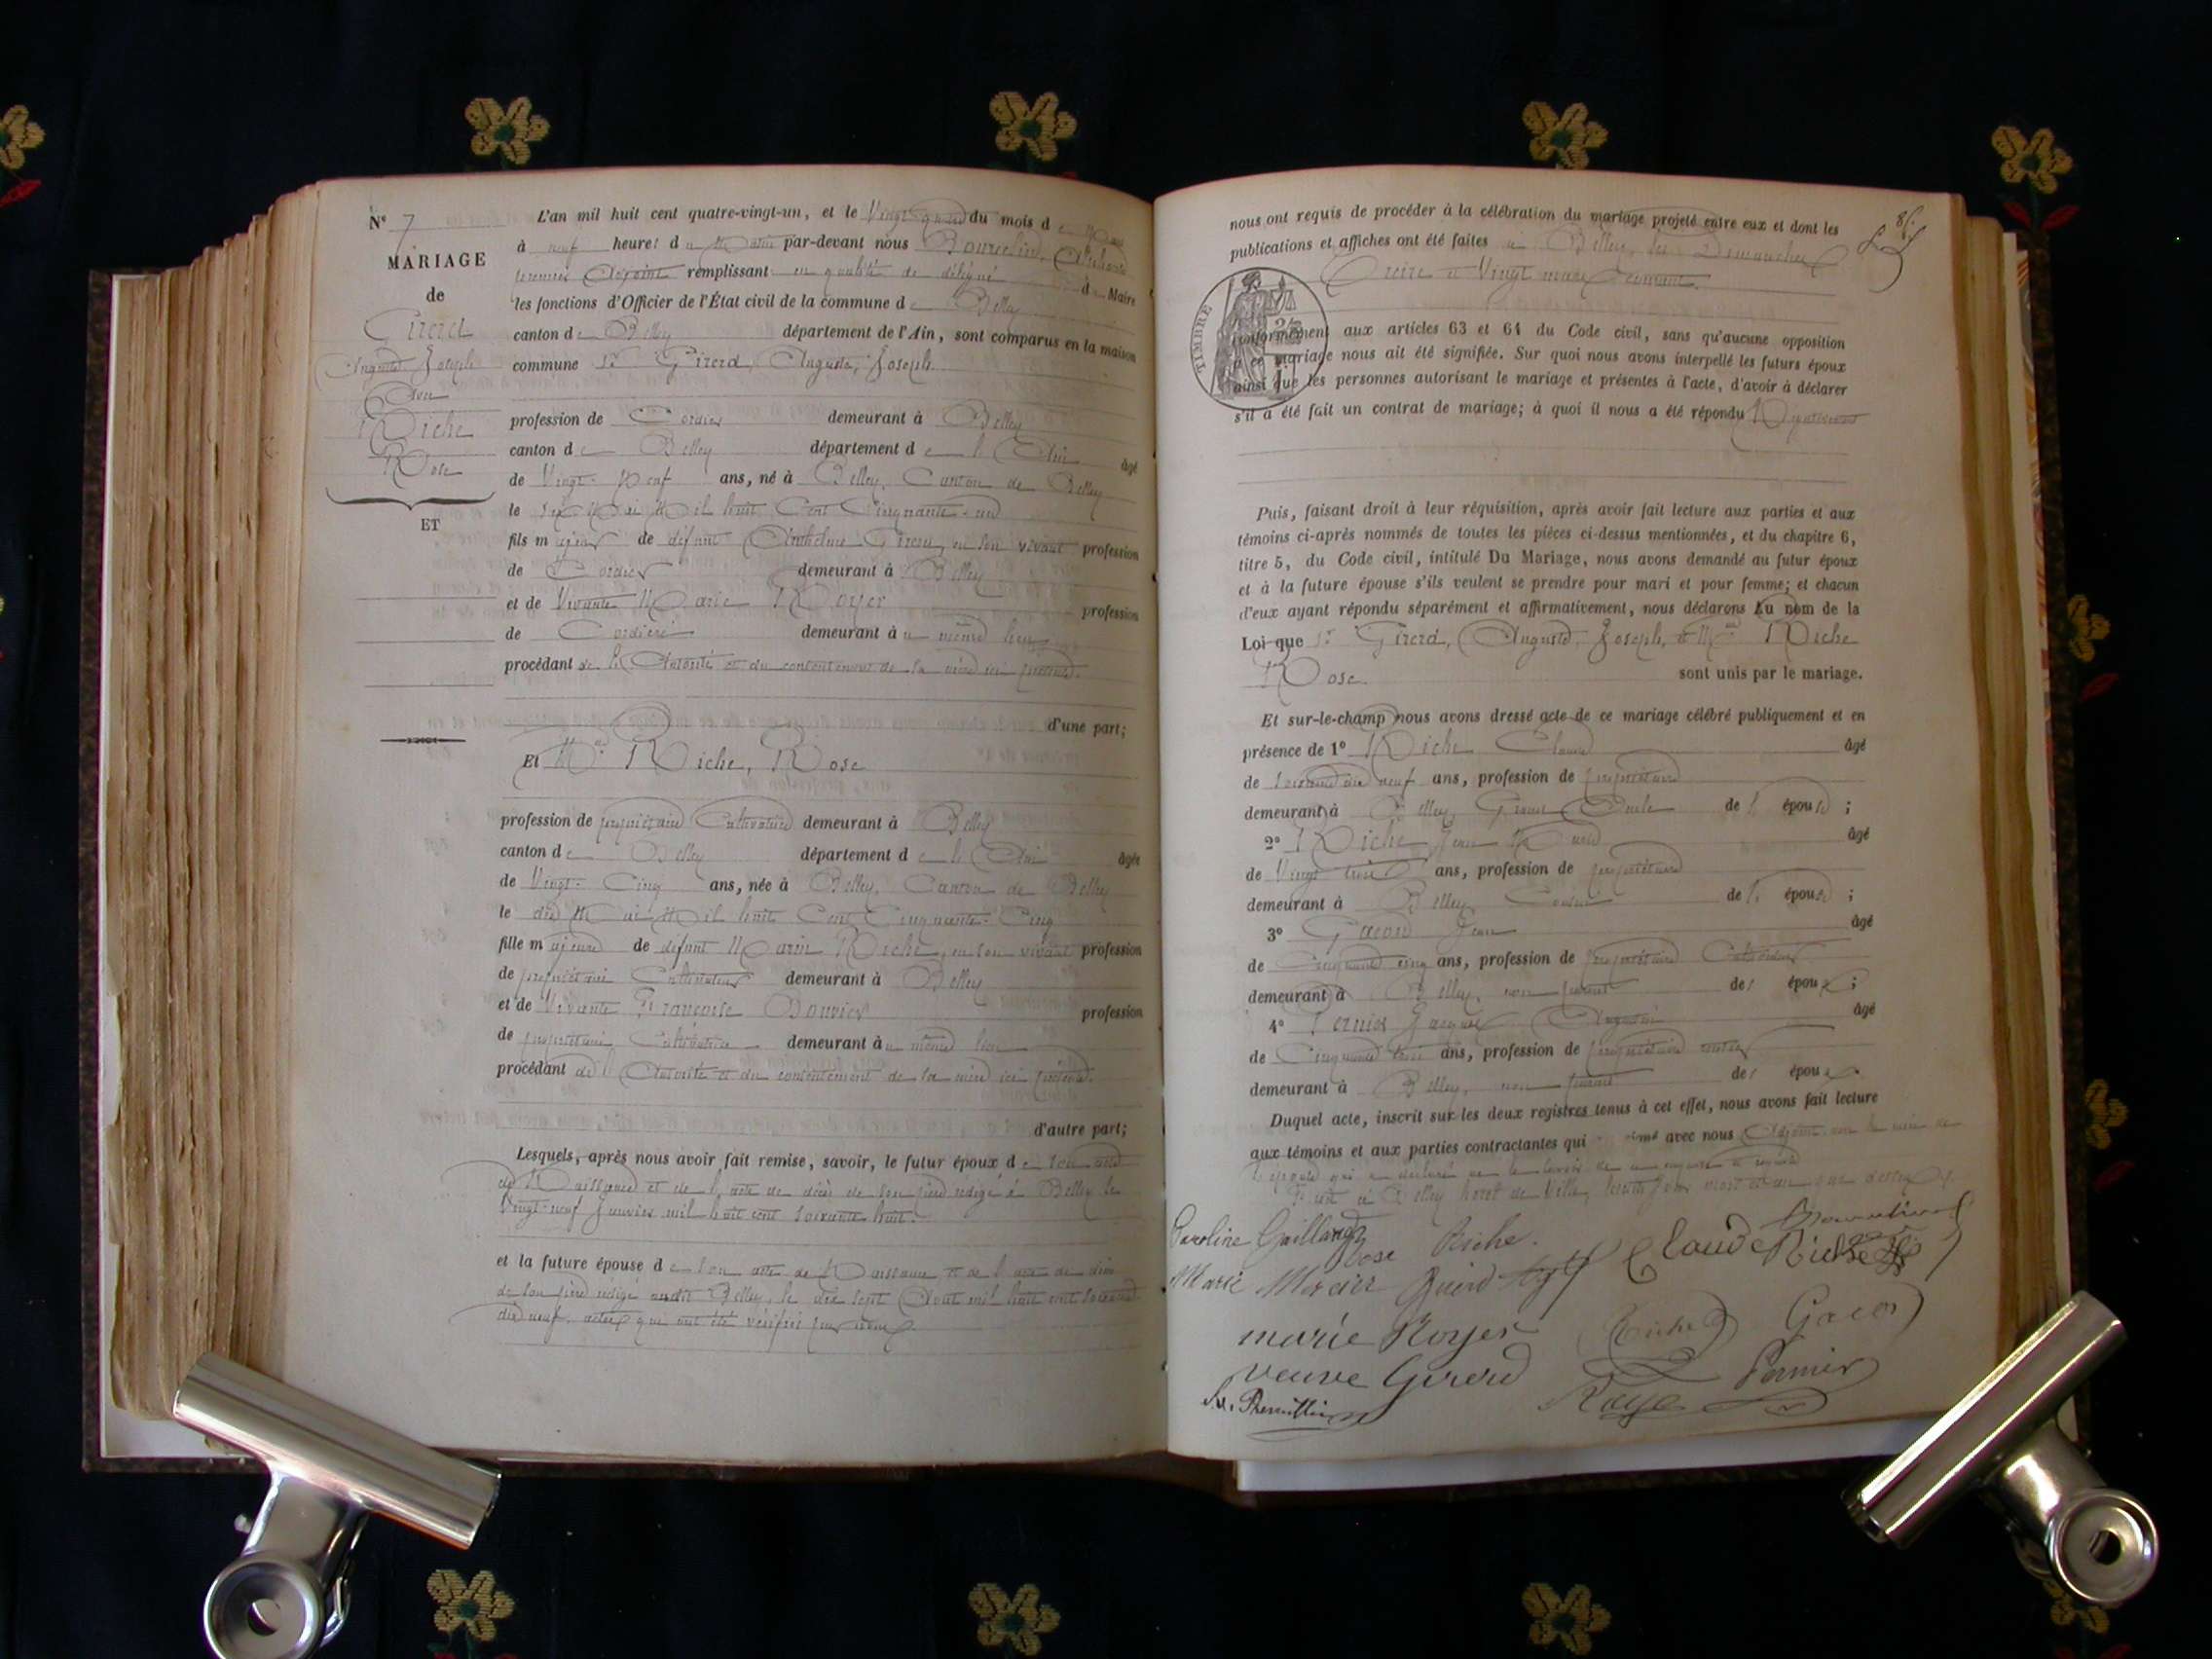 N° 7
MARIAGE
de
Girerd
Auguste Joseph
Riche
Rose
ET
L'an mil huit cent quatre-vingt-un, et le Vingt quatre du mois de Mars
à neuf heures du Matin par-devant nous
premier Adjoint remplissant en qualité de délégué du Maire
les fonctions d'Officier de l'État civil de la commune de Belley
canton de Belley département de l'Ain, sont comparus en la maison
commune Sr Girerd, Auguste, Joseph
profession de Cordier demeurant à Belley
canton de Belley département de l'Ain âgé
de Vingt-Neuf ans, né à Belley, Canton de Belley
le six Mai Mil huit Cent Cinquante-un
fils majeur de défunt Anthelme Girerd, en son vivant profession
de Cordier demeurant à Belley
et de Vivante Marie Royer profession
de Cordière demeurant au même lieu
procédant de l'Autorité et du consentement de sa mère ici présente.
d'une part;
Et Mlle Riche, Rose
profession de propriétaire Cultivatrice demeurant à Belley
canton de Belley département de l'Ain âgée
de Vingt-Cinq ans, née à Belley, Canton de Belley
le dix Mai Mil huit Cent Cinquante-Cinq
fille majeure de défunt Marin Riche, en son vivant profession
de propriétaire Cultivateur demeurant à Belley
et de Vivante Françoise Bouvier profession
de propriétaire Cultivatrice demeurant au même lieu
procédant de l'Autorité et du consentement de sa mère ici présente.
d'autre part;
Lesquels, après nous avoir fait remise, savoir, le futur époux de son acte
de Naissance et de l'acte de décès de son père rédigé à Belley le
Vingt-neuf Janvier mil huit cent soixante huit.
et la future épouse de son acte de Naissance et de l'acte de décès
de son père rédigé audit Belley, le dix sept Août mil huit cent soixante
dix neuf, actes qui ont été vérifiés par nous
nous ont requis de procéder à la célébration du mariage projeté entre eux et dont les
publications et affiches ont été faites à Belley, les Dimanches
Treize et Vingt mars courant.
TIMBRE
conformément aux articles 63 et 64 du Code civil, sans qu'aucune opposition
à ce mariage nous ait été signifiée. Sur quoi nous avons interpellé les futurs époux
ainsi que les personnes autorisant le mariage et présentes à l'acte, d'avoir à déclarer
s'il a été fait un contrat de mariage; à quoi il nous a été répondu Négativement
Puis, faisant droit à leur réquisition, après avoir fait lecture aux parties et aux
témoins ci-après nommés de toutes les pièces ci-dessus mentionnées, et du chapitre 6,
titre 5, du Code civil, intitulé Du Mariage, nous avons demandé au futur époux
et à la future épouse s'ils veulent se prendre pour mari et pour femme; et chacun
d'eux ayant répondu séparément et affirmativement, nous déclarons Au nom de la
Loi que Sr Girerd, Auguste, Joseph, et Mlle Riche
Rose sont unis par le mariage.
Et sur-le-champ nous avons dressé acte de ce mariage célébré publiquement et en
présence de 1° Riche Claude âgé
de soixante dix neuf ans, profession de propriétaire
demeurant à Belley, Grand Oncle de l'épouse;
2° Riche Jean Marie âgé
de Vingt trois ans, profession de propriétaire
demeurant à Belley, Cousin de l'épouse;
3° Gacon Jean âgé
de Cinquante cinq ans, profession de propriétaire Cultivateur
demeurant à Belley, non parent des époux;
4° Pernier Jacques âgé
de Cinquante trois ans, profession de propriétaire rentier
demeurant à Belley, non parent des époux.
Duquel acte, inscrit sur les deux registres tenus à cet effet, nous avons fait lecture
aux témoins et aux parties contractantes qui avec nous Adjoint, non la mère de
l'épouse qui a déclaré ne le savoir de ce requise
Fait à Belley hôtel de Ville, les jour mois et an que dessus
Caroline Gaillard
Rose Riche.
Claude Riche
Marie Mercier
Girerd
marie Royer
veuve Girerd
Riche
Gacon
Royer
Pernier